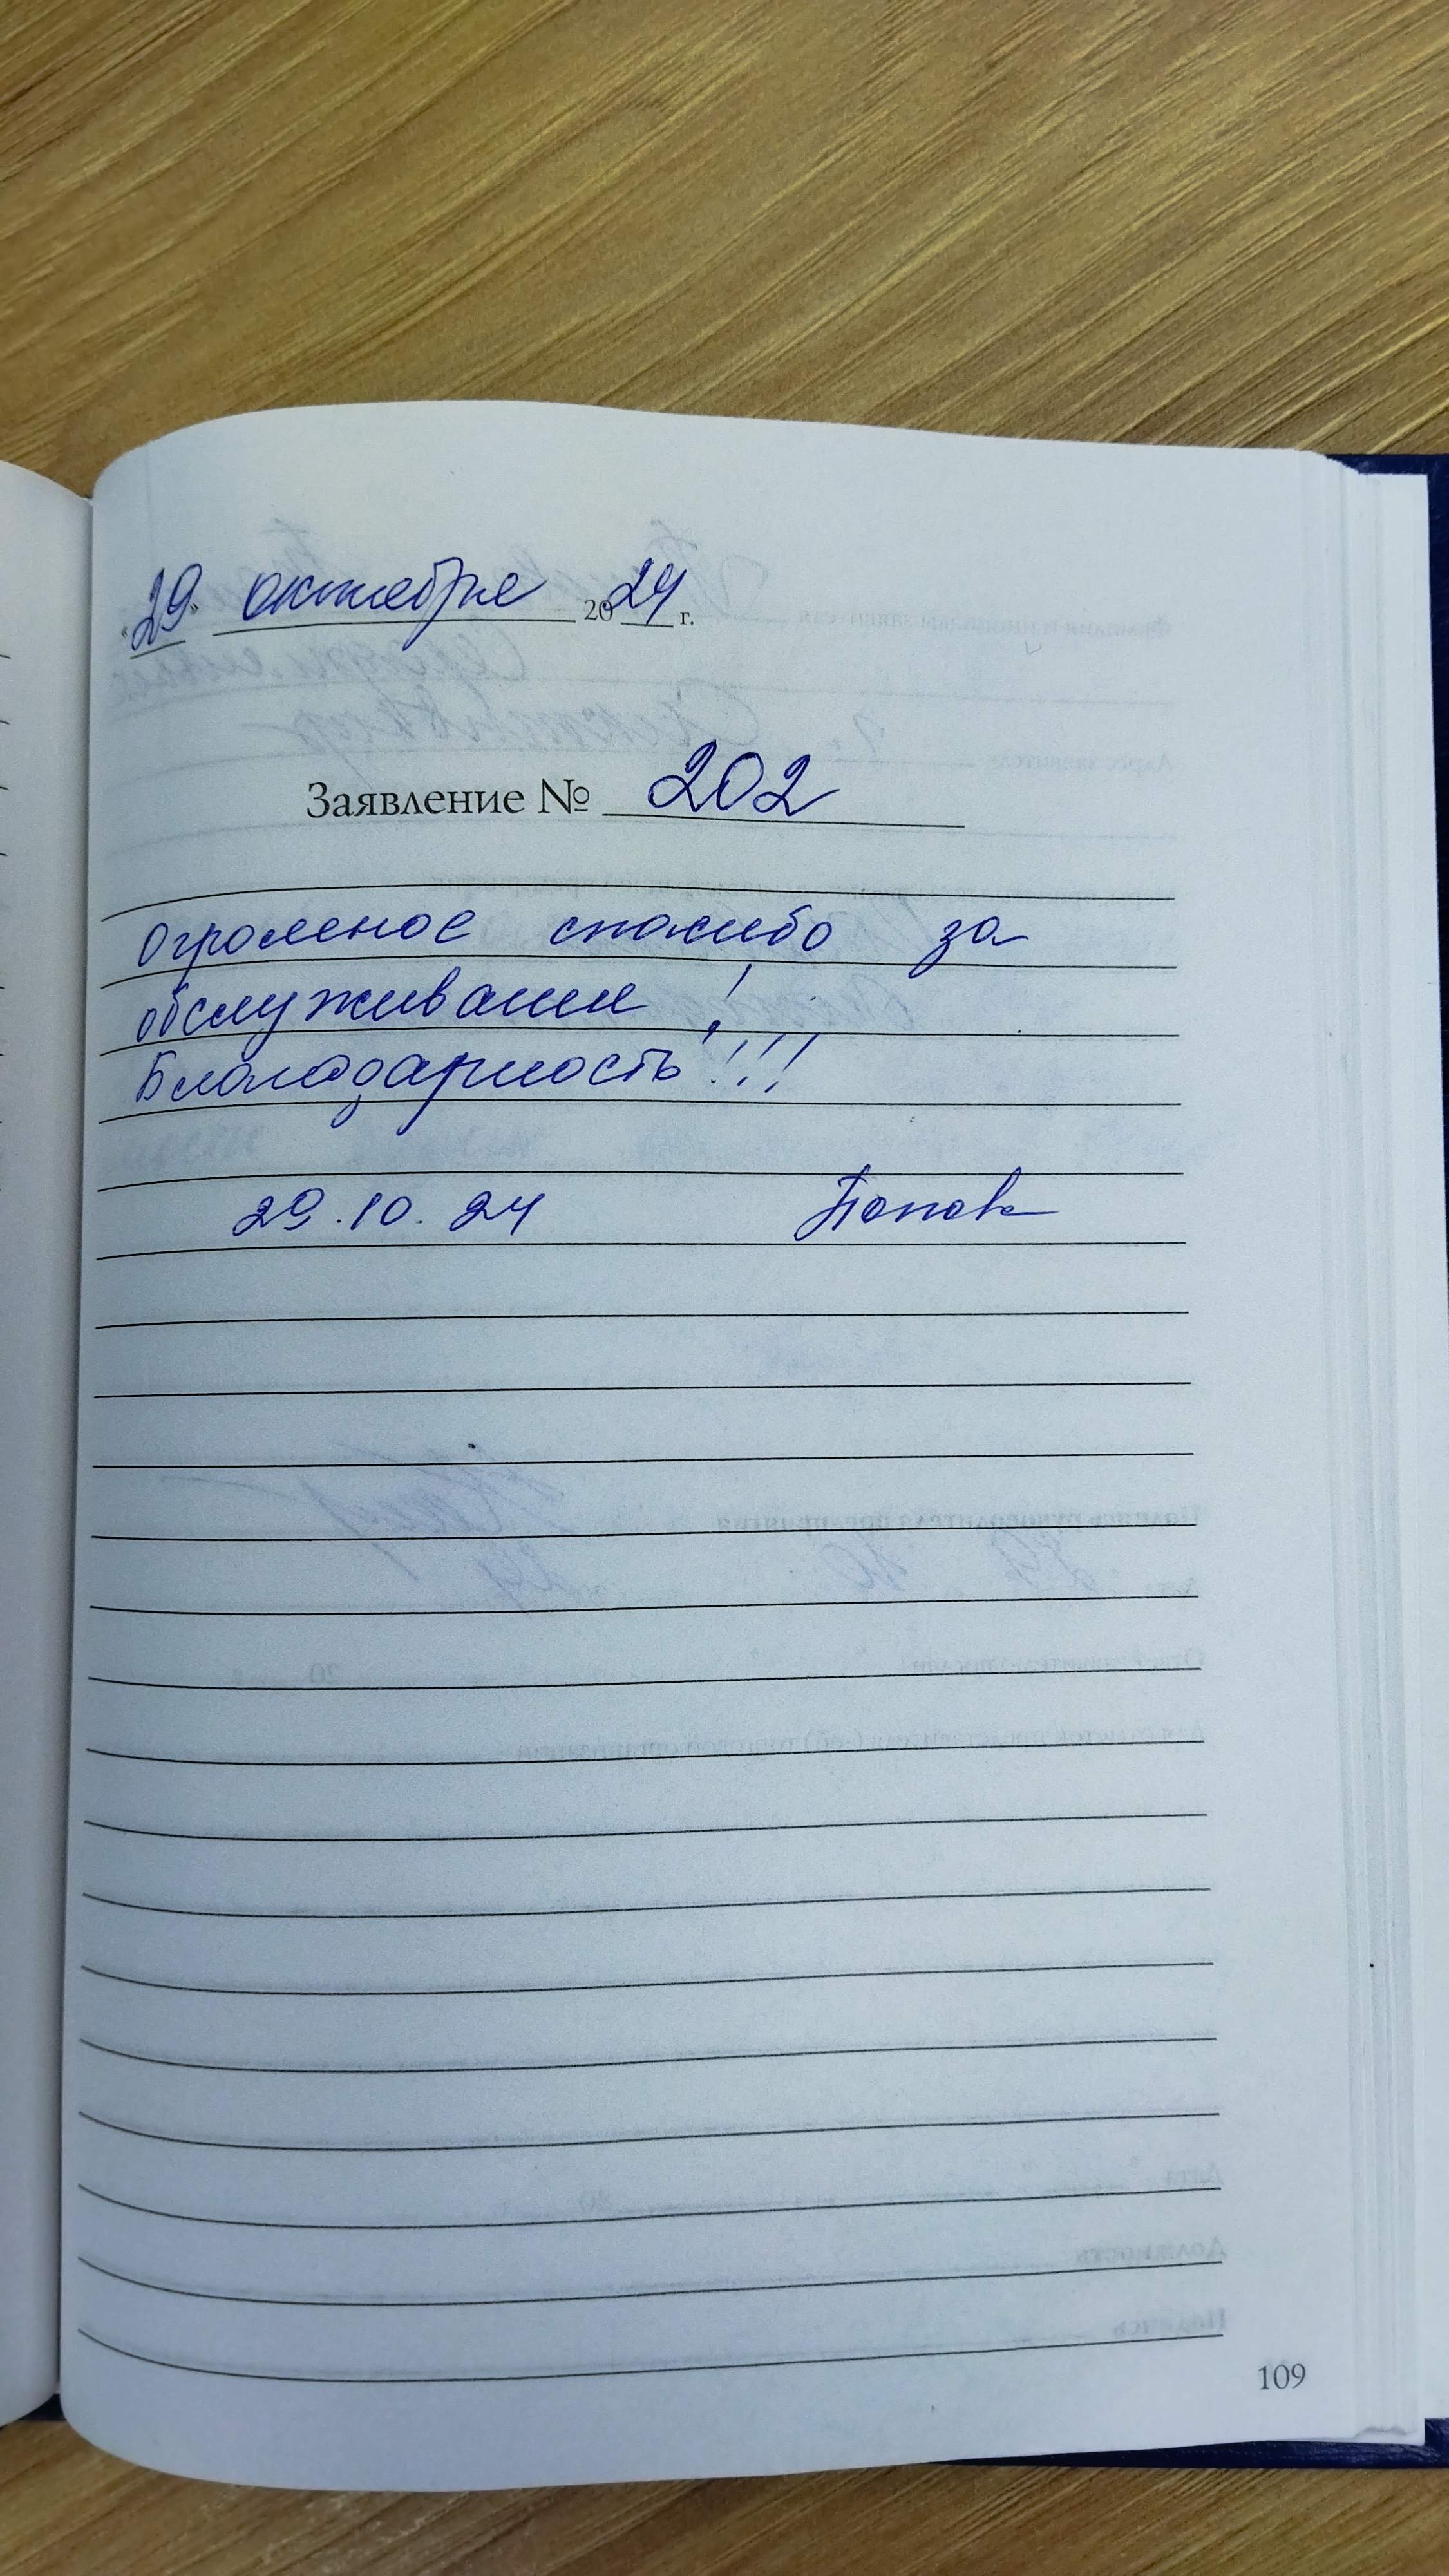 "29" октября 2024 г.
Заявление № 202
Огромное спасибо за
обслуживание!
Благодарность!!!
29.10.24 Попова
109